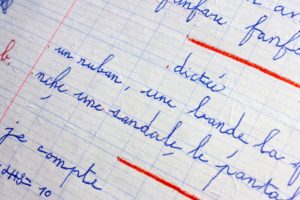 fanfare fanfa
dictée
b. un ruban, une bande la
nche, une sandale, le panta
je compte
= 10